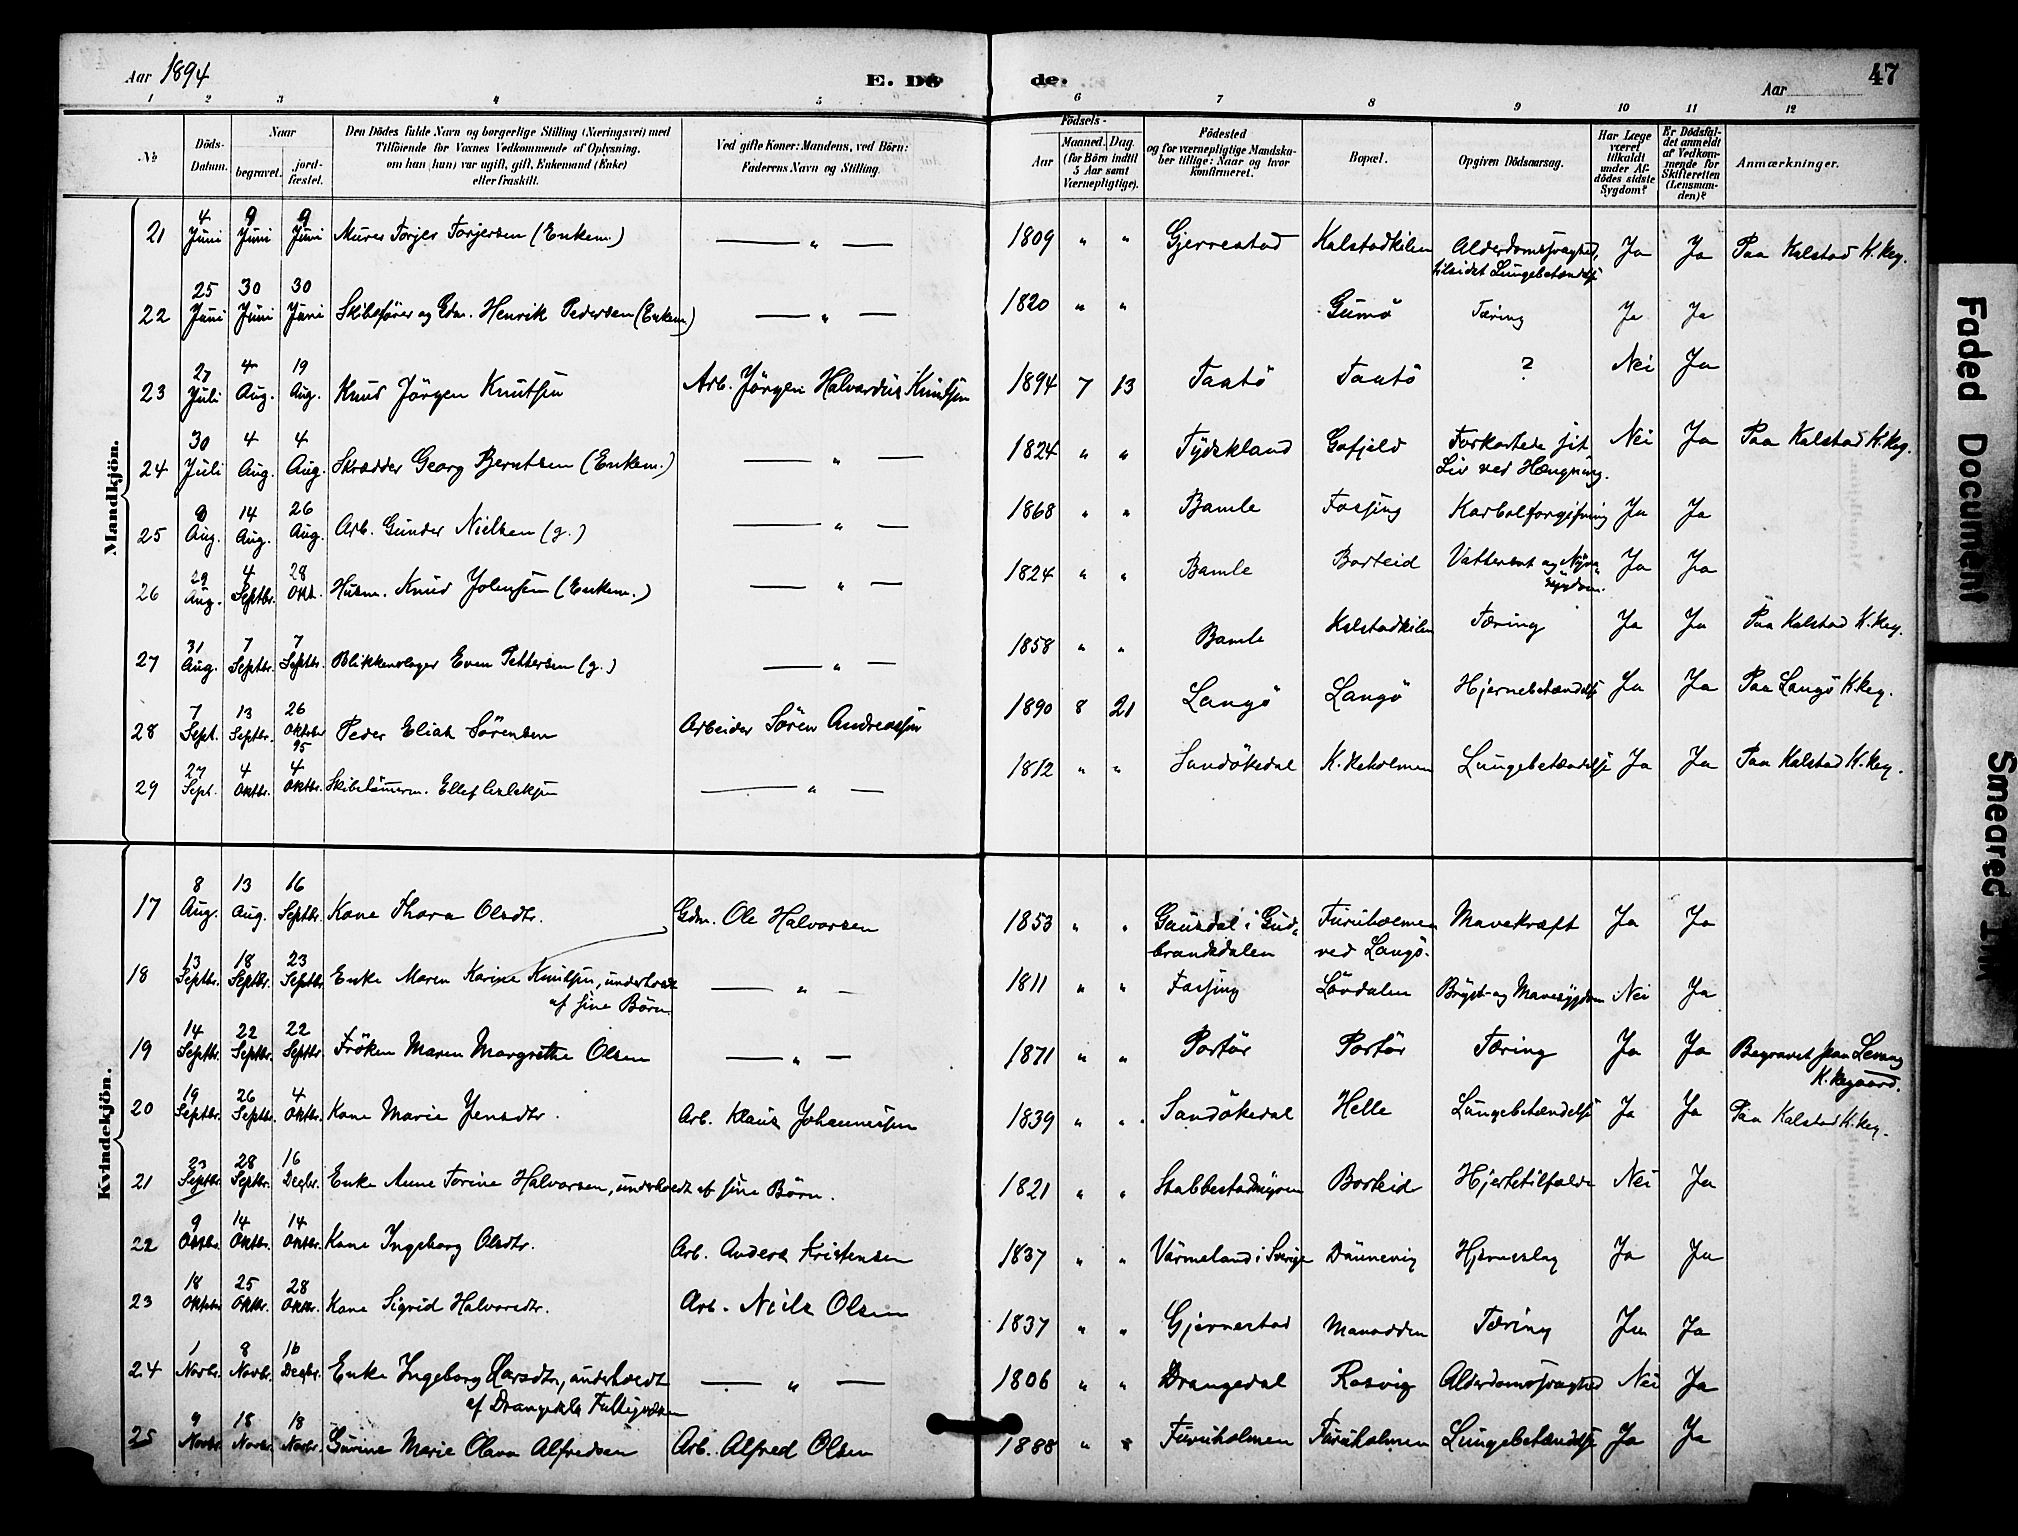 Aar 1894
E. Dö
de.
Aar
47
1 2 3 4 5 6 7 8 9 10 11 12
№
Döds-
Datum.
Naar
begravet.
jord-
fæstet.
Den Dödes fulde Navn og borgerlige Stilling (Næringsvei) med
Tilföiende for Voxnes Vedkommende af Oplysning,
om han (hun) var ugift, gift, Enkemand (Enke)
eller fraskilt.
Ved gifte Koner: Mandens, ved Börn:
Faderens Navn og Stilling.
Födsels-
Aar
Maaned. Dag.
(for Börn indtil
5 Aar samt
Værnepligtige).
Födested
og for værnepligtige Mandska-
ber tillige: Naar og hvor
konfirmeret.
Bopæl.
Opgiven Dödsaarsag.
Har Læge
været
tilkaldt
under Af-
dödes sidste
Sygdom?
Er Dödsfal-
det anmeldt
af Vedkom-
mende for
Skifteretten
(Lensman-
den)?
Anmærkninger.
Mandkjön.
21 4 Juni 9 Juni 9 Juni Murer Torjer Torjersen (Enkem.) — " — 1809 " " Gjerrestad Kalstadkilen Alderdomssvaghed, Ja Ja Paa Kalstad K.keg.
tilsidst Lungebetændelse
22 25 Juni 30 Juni 30 Juni Skibsförer og Gdm. Henrik Pedersen (Enkem.) — " — 1820 " " Gumö Tæring Ja Ja
23 27 Juli 4 Aug. 19 Aug. Knud Jörgen Knutsen Arb. Jörgen Halvardus Knudsen 1894 7 13 Taatö Taatö ? Nei Ja
24 30 Juli 4 Aug. 4 Aug. Skrædder Georg Berntsen (Enkem.) — " — 1824 " " Tydskland Gofjeld Forkortede sit Nei Ja Paa Kalstad K.keg.
Liv ved Hængning.
25 8 Aug. 14 Aug. 26 Aug. Arb. Gunder Nielsen (g.) — " — 1868 " " Bamle Fossing Karbolforgiftning Ja Ja
26 29 Aug. 4 Septbr. 28 Okt. Husm. Knud Johnsen (Enkem.) — " — 1824 " " Bamle Borteid Vattersot og Nyre- Ja Ja
sygdom.
27 31 Aug. 7 Septbr. 7 Septbr. Blikkenslager Even Pettersen (g.) — " — 1858 " " Bamle Kalstadkilen Tæring Ja Ja Paa Kalstad K.keg.
28 7 Sept. 13 Septbr. 26 Oktober 95 Peder Elias Sörensen Arbeider Sören Andreassen 1890 8 21 Langö Langö Hjernebetændelse Ja Ja Paa Langö K.keg.
29 27 Sept. 4 Oktbr. 4 Oktbr. Skibstömerm. Ellef — " — 1812 " " Sandökedal Lungebetændelse Ja Ja Paa Kalstad K.keg.
Kvindekjön.
17 8 Aug. 13 Aug. 16 Septbr. Kone Thora Olsdtr. Gdm. Ole Halvorsen 1853 " " Gausdal i Gud- Furuholmen Mavekræft Ja Ja
brandsdalen ved Langö.
18 13 Septbr. 18 Septbr. 23 Septbr. Enke Maren Karine Knutsen, underholdt — " — 1811 " " Fossing Lövdalen Bryst- og Mavesygdom Nei Ja
af sine Börn.
19 14 Septbr. 22 Septbr. 22 Septbr. Fröken Maren Margrethe Olsen — " — 1871 " " Portör Portör Tæring Ja Ja Begravet paa Levang
K.kegaard.
20 19 Septbr. 26 Septbr. 4 Oktbr. Kone Marie Jensdtr. Arb. Klaus Johannessen 1839 " " Sandökedal Helle Lungebetændelse Ja Ja Paa Kalstad K.keg.
21 23 Septbr. 28 Septbr. 16 Decbr. Enke Anne Torine Halvorsen, underholdt af sine Börn. 1821 " " Stabbestadmyren Borteid Hjertetilfælde Nei Ja
22 9 Oktbr. 14 Oktbr. 14 Oktbr. Kone Ingeborg Olsdtr. Arb. Anders Kristensen 1837 " " Värmeland i Sverige Dannevig Hjerneslag Ja Ja
23 18 Oktober 25 Oktbr. 28 Oktbr. Kone Sigrid Halvorsdtr. Arb. Niels Olsen 1837 " " Gjernestad Manodden Tæring Ja Ja
24 1 Novbr. 8 Novbr. 16 Decbr. Enke Ingeborg Larsdtr., underholdt — " — 1806 " " Drangedal Rosvig Alderdomssvaghed Nei Ja
af Drangedals Fattigvæsen
25 9 Novbr. 18 Novbr. 18 Novbr. Gurine Marie Olava Alfredsen Arb. Alfred Olsen 1888 " " Furuholmen Furuholmen Lungebetændelse Ja Ja
Faded Document
Smeared Ink